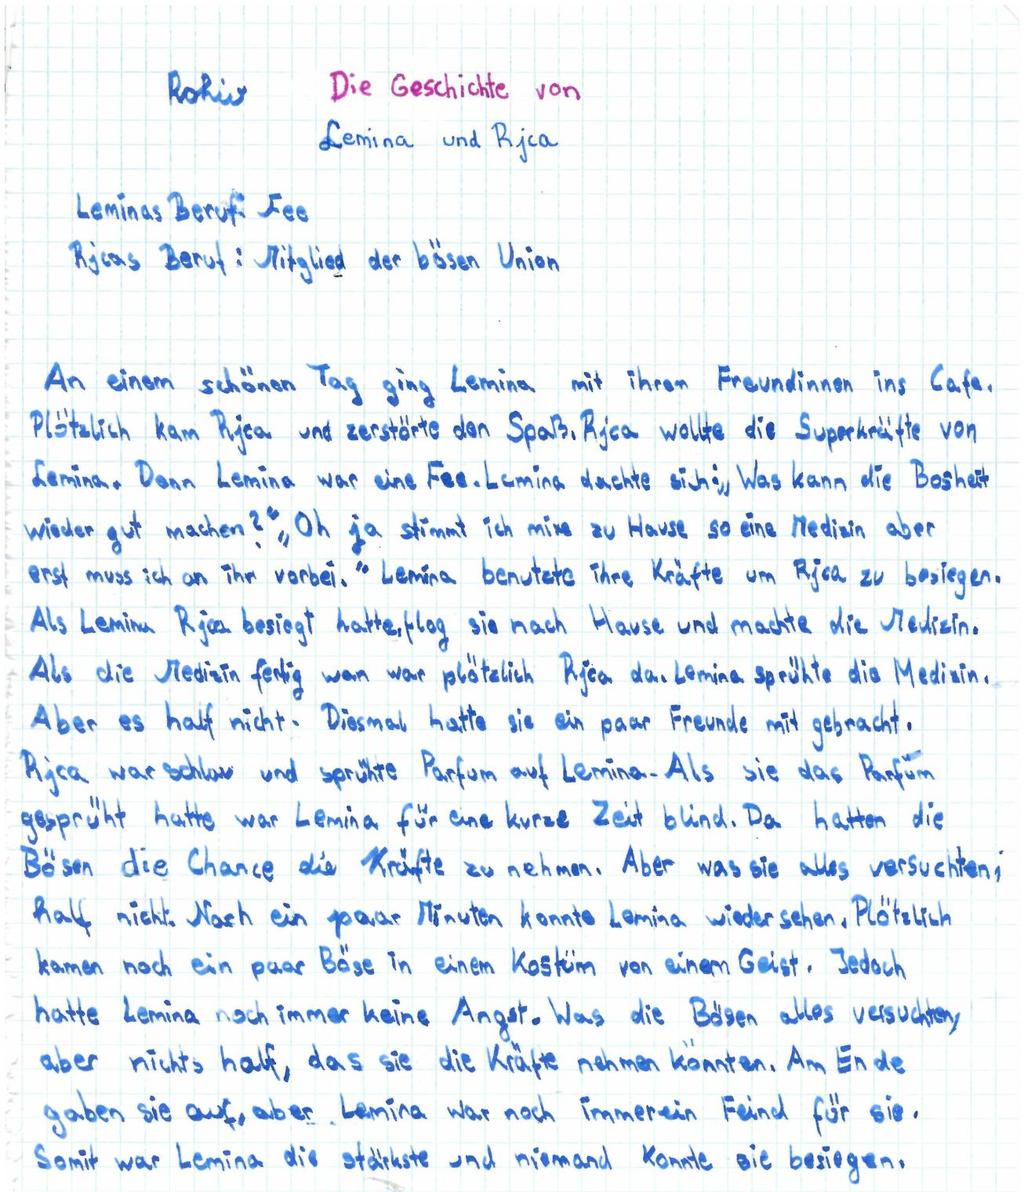 Die Geschichte von
Lemina und Rjca
Leminas Beruf: Fee
Rjcas Beruf: Mitglied der bösen Union
An einem schönen Tag ging Lemina mit ihren Freundinnen ins Cafe.
Plötzlich kam Rjca und zerstörte den Spaß. Rjca wollte die Superkräfte von
Lemina. Denn Lemina war eine Fee. Lemina dachte sich: „Was kann die Bosheit
wieder gut machen?“ „Oh ja stimmt ich mixe zu Hause so eine Medizin aber
erst muss ich an ihr vorbei.“ Lemina benutzte ihre Kräfte um Rjca zu besiegen.
Als Lemina Rjca besiegt hatte, flog sie nach Hause und machte die Medizin.
Als die Medizin fertig war war plötzlich Rjca da. Lemina sprühte die Medizin.
Aber es half nicht. Diesmal hatte sie ein paar Freunde mit gebracht.
Rjca war schlau und sprühte Parfum auf Lemina. Als sie das Parfüm
gesprüht hatte war Lemina für eine kurze Zeit blind. Da hatten die
Bösen die Chance die Kräfte zu nehmen. Aber was sie alles versuchten,
half nicht. Nach ein paar Minuten konnte Lemina wieder sehen. Plötzlich
kamen noch ein paar Böse in einem Kostüm von einem Geist. Jedoch
hatte Lemina noch immer keine Angst. Was die Bösen alles versuchten,
aber nichts half, das sie die Kräfte nehmen könnten. Am Ende
gaben sie auf, aber Lemina war noch immer ein Feind für sie.
Somit war Lemina die stärkste und niemand konnte sie besiegen.